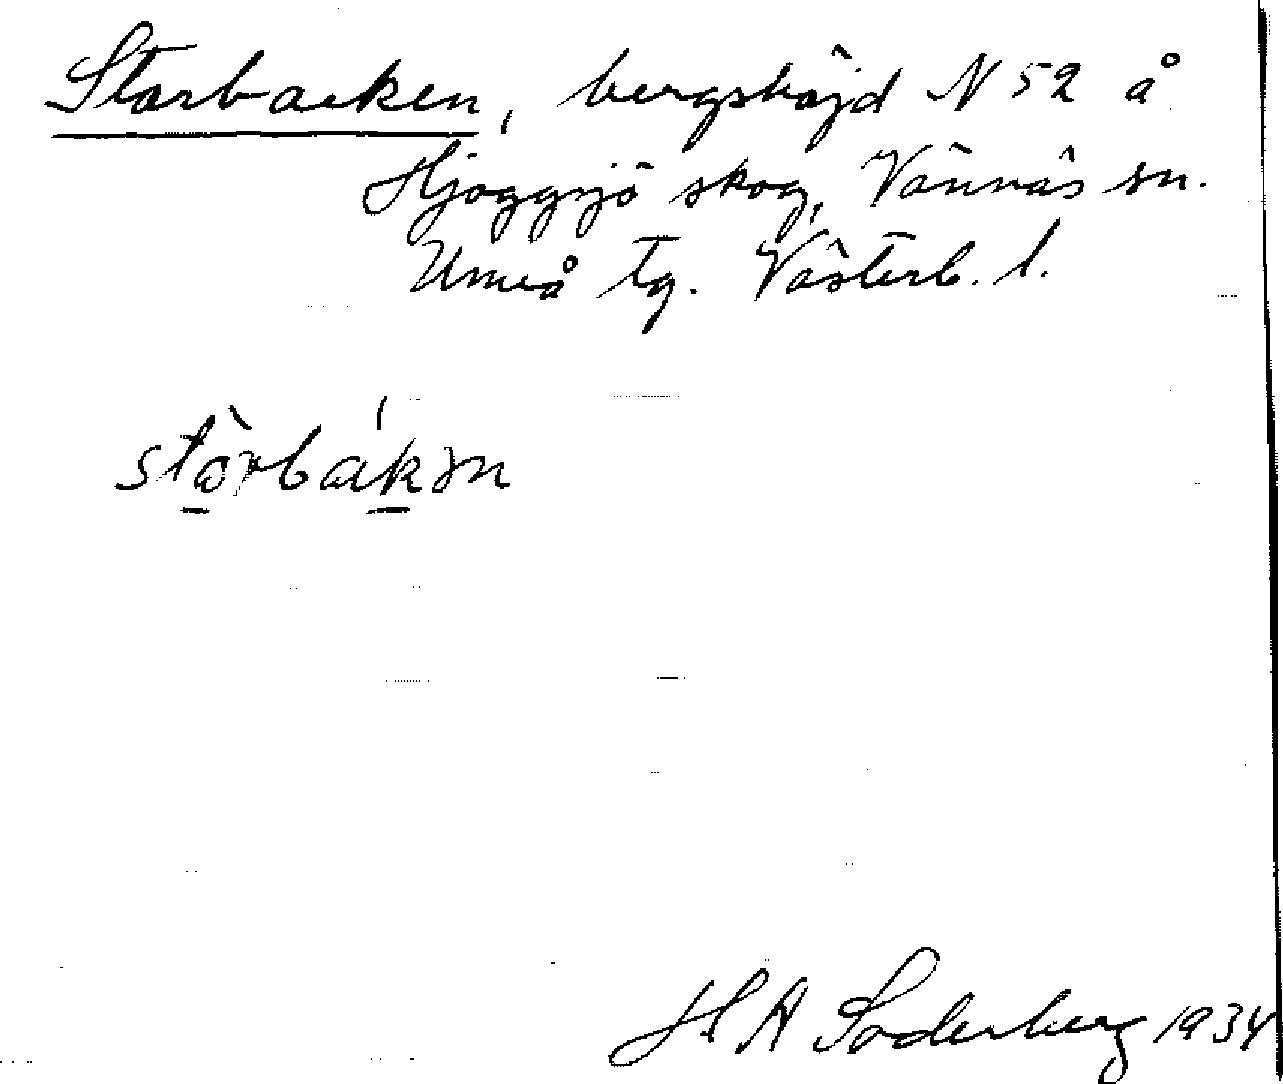 Storbacken, bergshöjd N 52 å
Hjoggsjö skog, Vännäs sn.
Umeå tg. Västerb. l.
H A Söderberg 1934